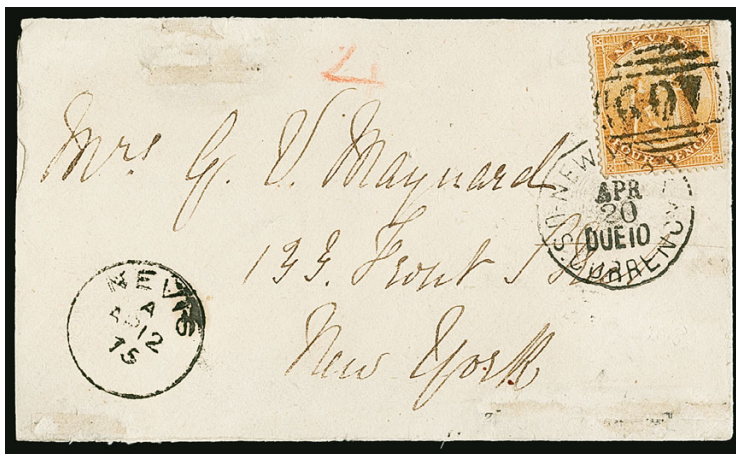 NEVIS
FOUR PENCE
A09
Mrs G. V. Maynard
133. Front
New York
NEW
APR
20
DUE 10
U.S. CURRENCY
NEVIS
A
AP 12
75